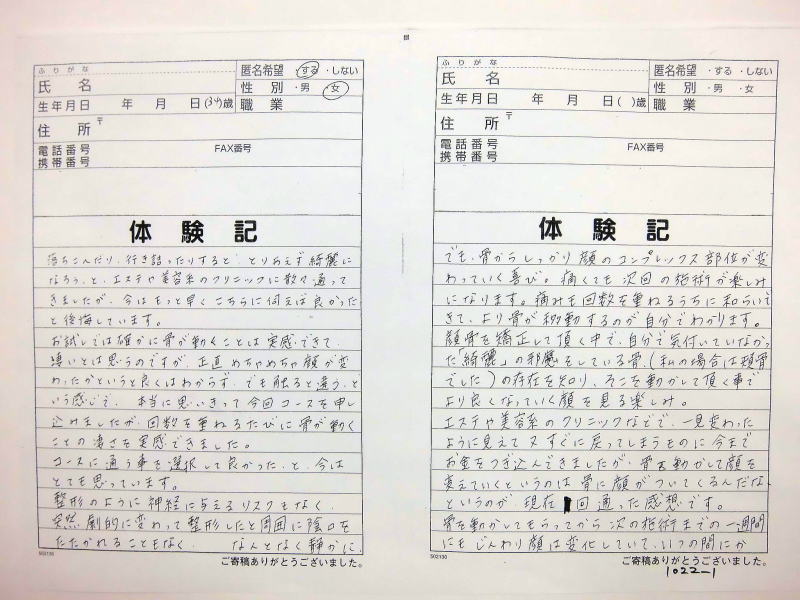 ふりがな
氏 名
匿名希望 ・する ・しない
性 別 ・男 ・女
生年月日 年 月 日(34)歳 職 業
住 所 〒
電話番号 FAX番号
携帯番号
体 験 記
落ちこんだり、行き詰ったりすると、とりあえず綺麗に
なろう、と、エステや美容系のクリニックに散々通って
きましたが、今はもっと早くこちらに伺えば良かった
と後悔しています。
お試しでは確かに骨が動くことは実感できて、
凄いとは思うのですが、正直めちゃめちゃ顔が変
わったかというと良くはわからず、でも触ると違う、と
いう感じで、本当に思いきって今回コースを申し
込みましたが、回数を重ねるたびに骨が動く
ことの凄さを実感できました。
コースに通う事を選択して良かった、と、今は
とても思っています。
整形のように神経に与えるリスクもなく、
突然、劇的に変わって整形したと周囲に陰口を
たたかれることもなく、 なんとなく静かに、
S02130
ご寄稿ありがとうございました。
ふりがな
氏 名
匿名希望 ・する ・しない
性 別 ・男 ・女
生年月日 年 月 日( )歳 職 業
住 所 〒
電話番号 FAX番号
携帯番号
体 験 記
でも、骨からしっかり顔のコンプレックス部位が変
わっていく喜び。痛くても次回の施術が楽しみ
になります。痛みも回数を重ねるうちに和らいで
きて、より骨が移動するのが自分でわかります。
顔骨を矯正して頂く中で、自分で気付いていなかっ
た「綺麗」の邪魔をしている骨、(私の場合は頬骨
でした)の存在を知り、そこを動かして頂く事で
より良くなっていく顔を見る楽しみ。
エステや美容系のクリニックなどで、一見変わった
ように見えて又すぐに戻ってしまうものに今まで
お金をつぎ込んできましたが、骨を動かして顔を
変えていくというのは骨に顔がついてくるんだな、
というのが、現在 回通った感想です。
骨を動かしてもらってから次の施術までの一週間
にもじんわり顔は変化していて、いつの間にか
S02130
ご寄稿ありがとうございました。
1022-1